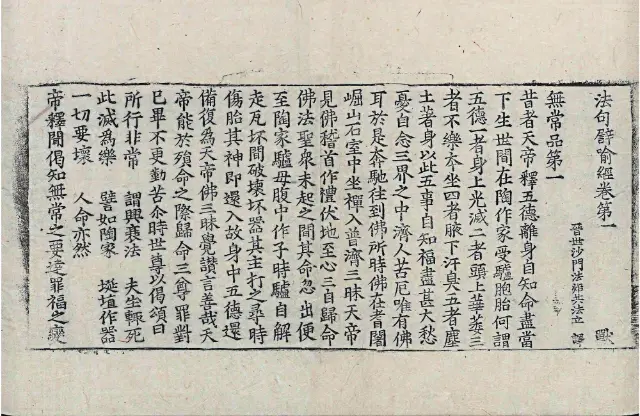 法句譬喻經卷第一
晉世沙門法炬共法立 譯
無常品第一
昔者天帝釋五德離身自知命盡當
下生世間在陶作家受驢胞胎何謂
五德一者身上光滅二者頭上華萎三
者不樂夲坐四者腋下汗臭五者塵
土著身以此五事自知福盡甚大愁
憂自念三界之中濟人苦厄唯有佛
耳於是奔馳往到佛所時佛在耆闍
崛山石室中坐禪入普濟三昧天帝
見佛稽首作禮伏地至心三自歸命
佛法聖衆未起之間其命忽出便
至陶家驢母腹中作子時驢自解
走瓦坏間破壞坏器其主打之尋時
傷胎其神即還入故身中五德還
備復為天帝佛三昧覺讚言善哉天
帝能於殞命之際歸命三尊罪對
已畢不更勤苦尒時世尊以偈頌曰
所行非常 謂興衰法 夫生輒死
此滅為樂 譬如陶家 埏埴作器
一切要壞 人命亦然
帝釋聞偈知無常之要達罪福之變